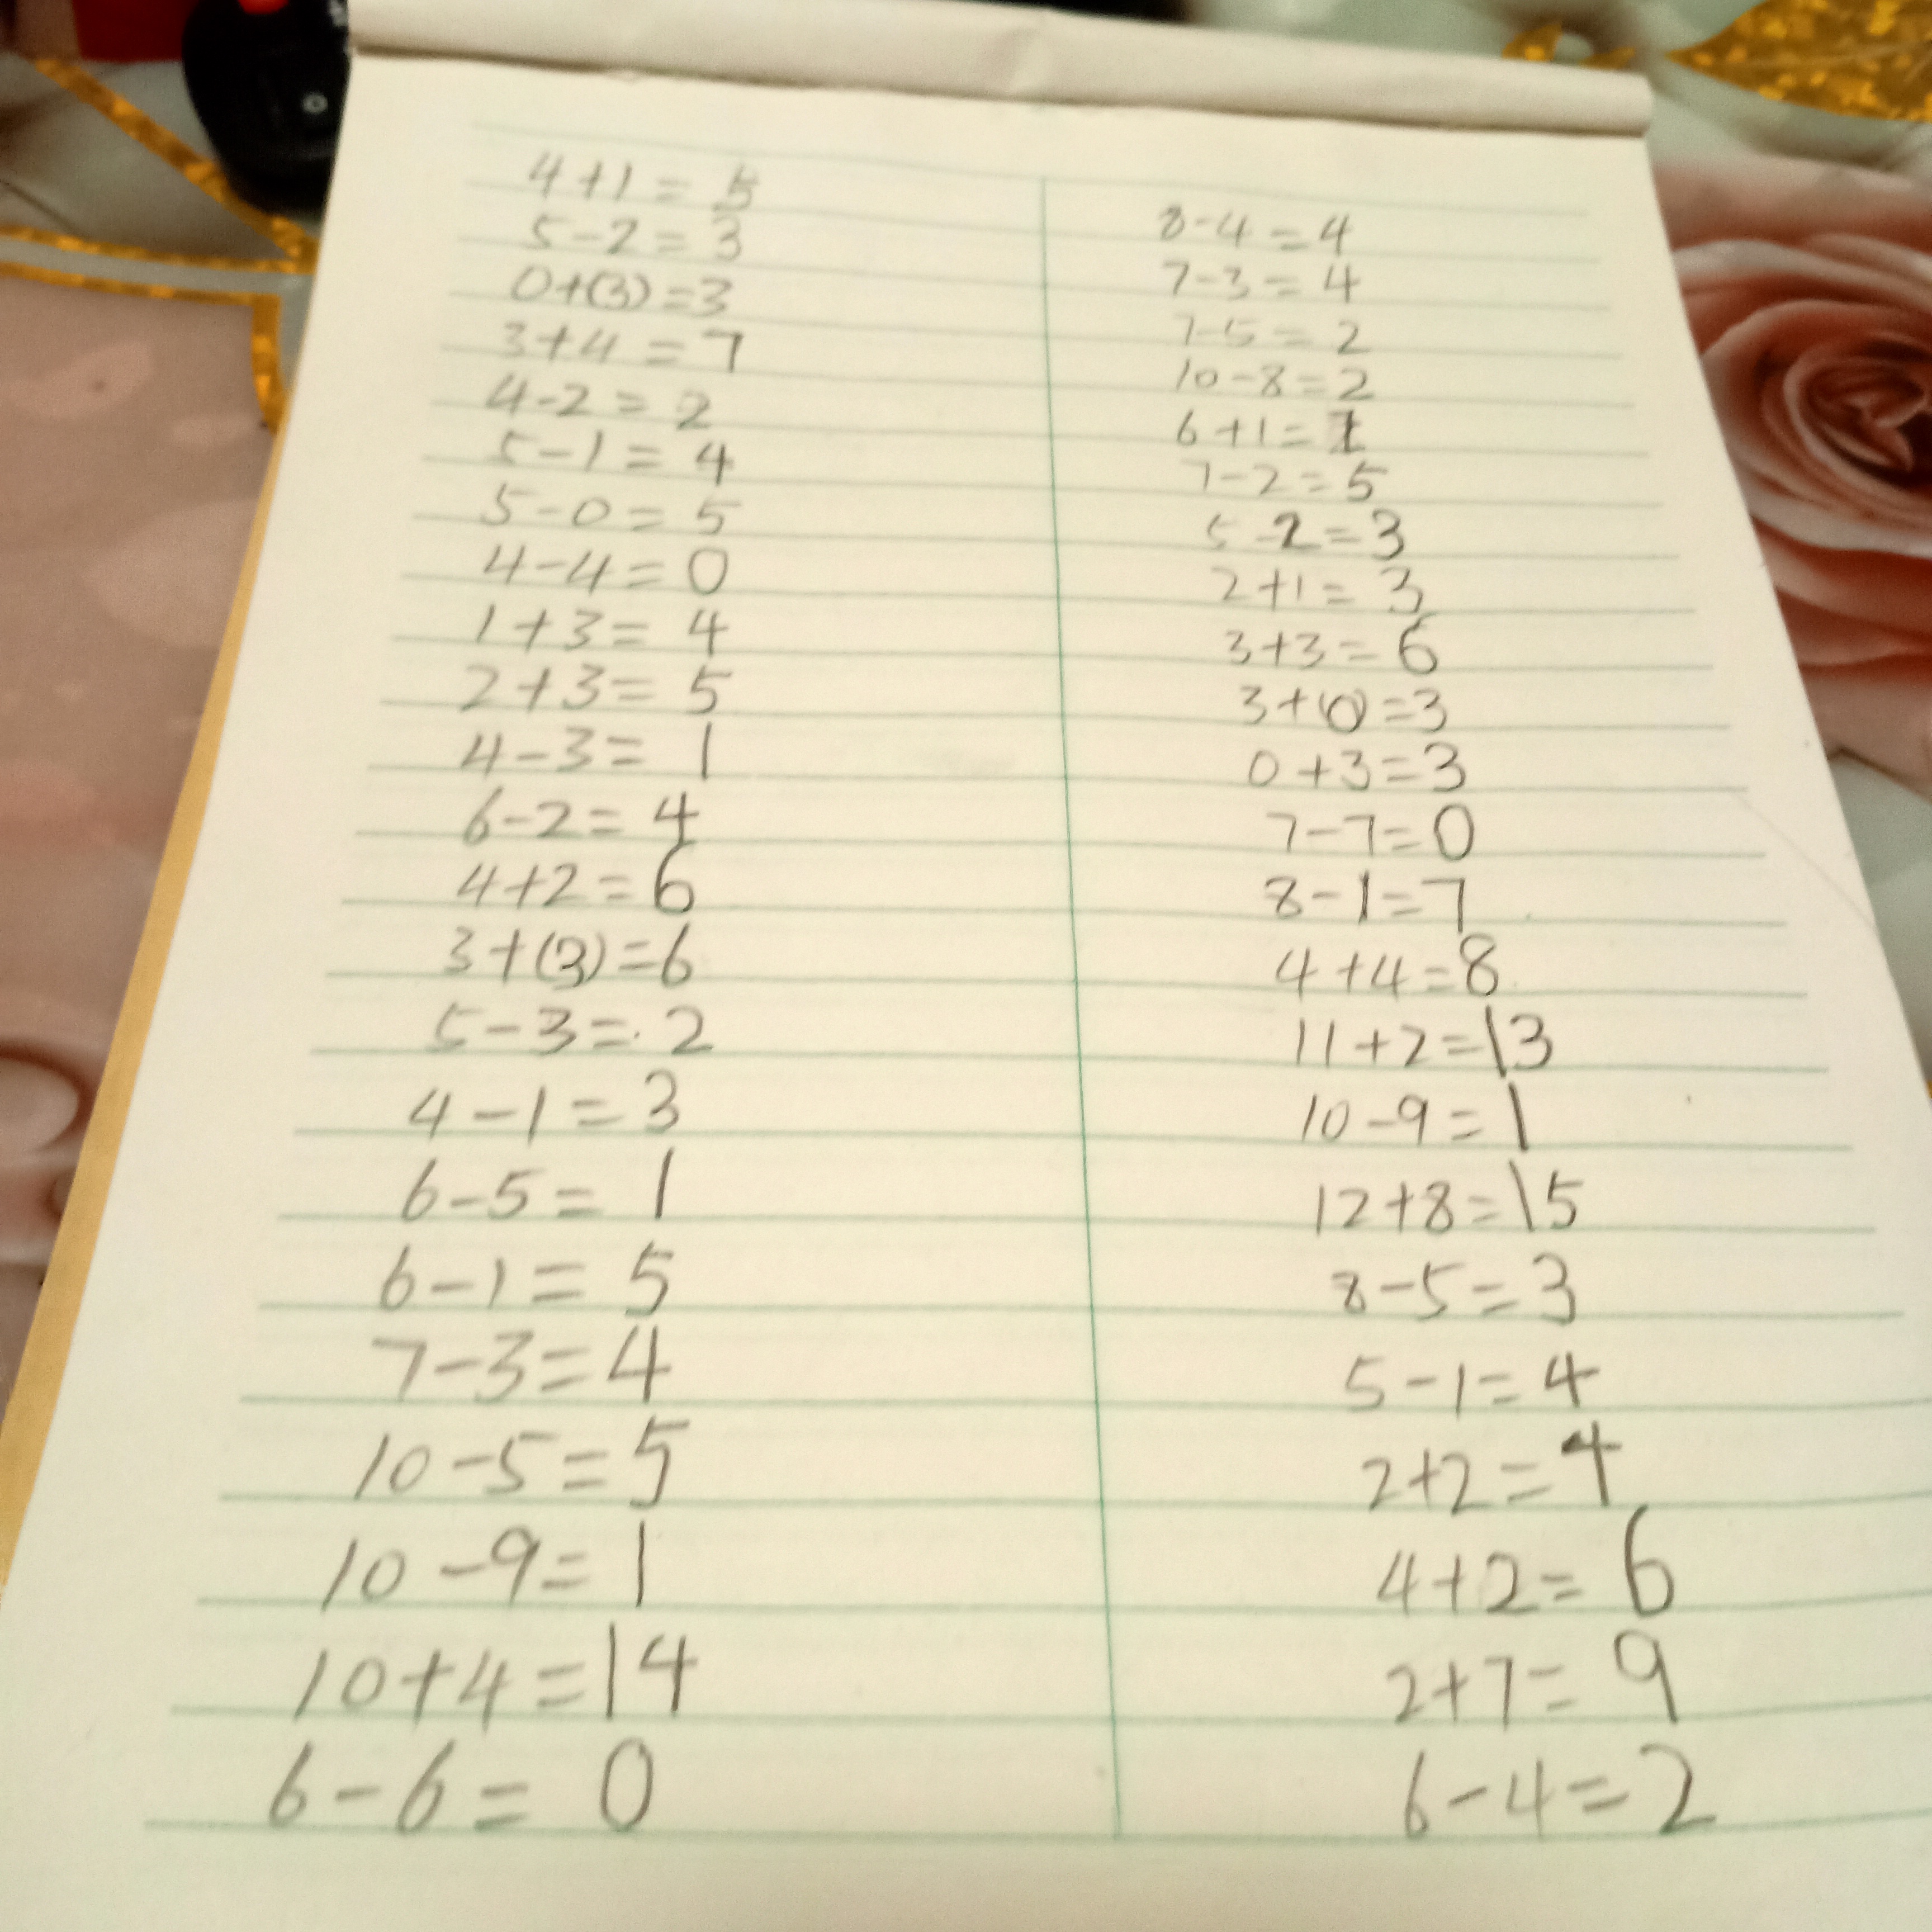 4+1=5
5-2=3
0+(3)=3
3+4=7
4-2=2
5-1=4
5-0=5
4-4=0
1+3=4
2+3=5
4-3=1
6-2=4
4+2=6
3+(3)=6
5-3=2
4-1=3
6-5=1
6-1=5
7-3=4
10-5=5
10-9=1
10+4=14
6-6=0
8-4=4
7-3=4
7-5=2
10-8=2
6+1=
7-2=5
5-2=3
2+1=3
3+3=6
3+(0)=3
0+3=3
7-7=0
8-1=7
4+4=8
11+2=13
10-9=1
12+8=15
8-5=3
5-1=4
2+2=4
4+2=6
2+7=9
6-4=2